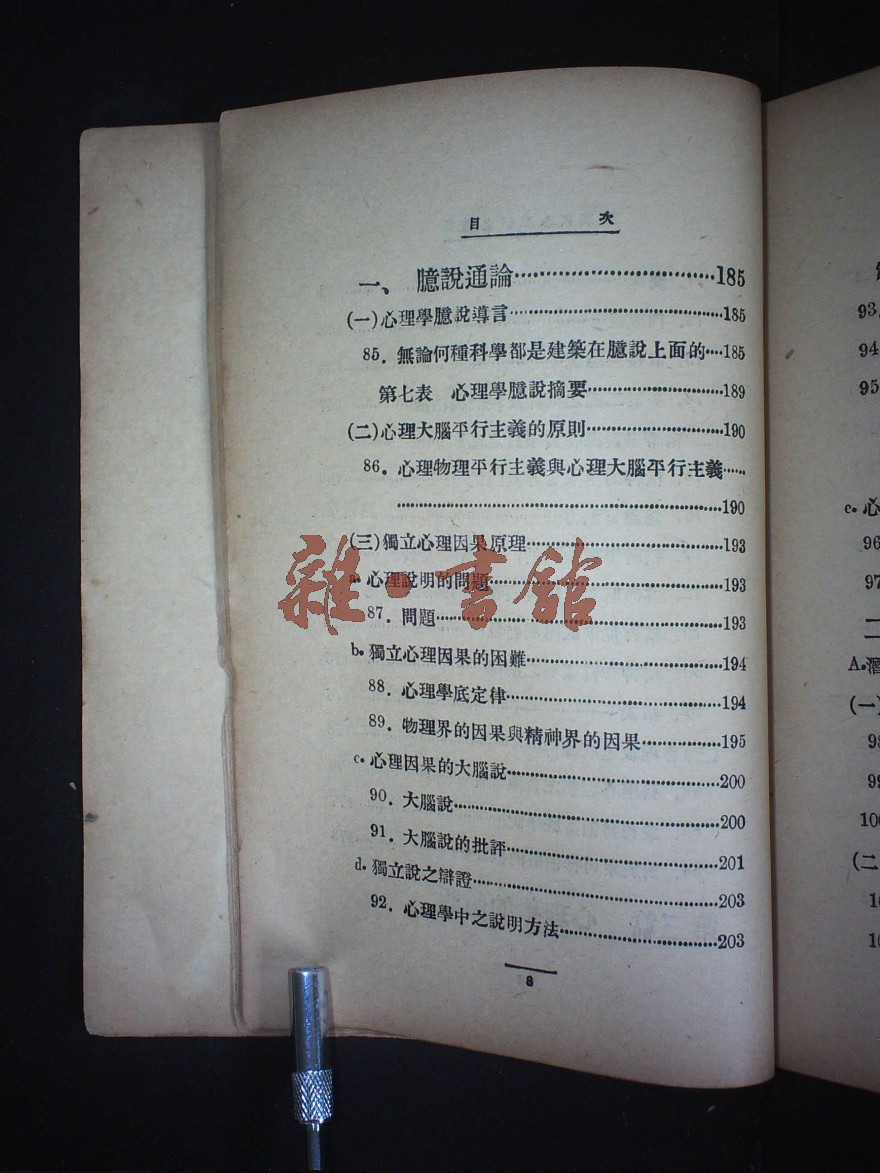 目 次
一、 臆說通論……………………………185
(一)心理學臆說導言……………………………185
85．無論何種科學都是建築在臆說上面的…185
第七表 心理學臆說摘要……………………189
(二)心理大腦平行主義的原則……………………190
86．心理物理平行主義與心理大腦平行主義……
……………………………………………190
(三)獨立心理因果原理……………………………193
a．心理說明的問題………………………………193
87．問題……………………………………………193
b．獨立心理因果的困難…………………………194
88．心理學底定律…………………………………194
89．物理界的因果與精神界的因果……………195
c．心理因果的大腦說……………………………200
90．大腦說…………………………………………200
91．大腦說的批評…………………………………201
d．獨立說之辯證…………………………………203
92．心理學中之說明方法…………………………203
8
雜·書館
93.
94
95
c．心
96
97
二
A．潛
(一)
98
99
100
(二
10
10